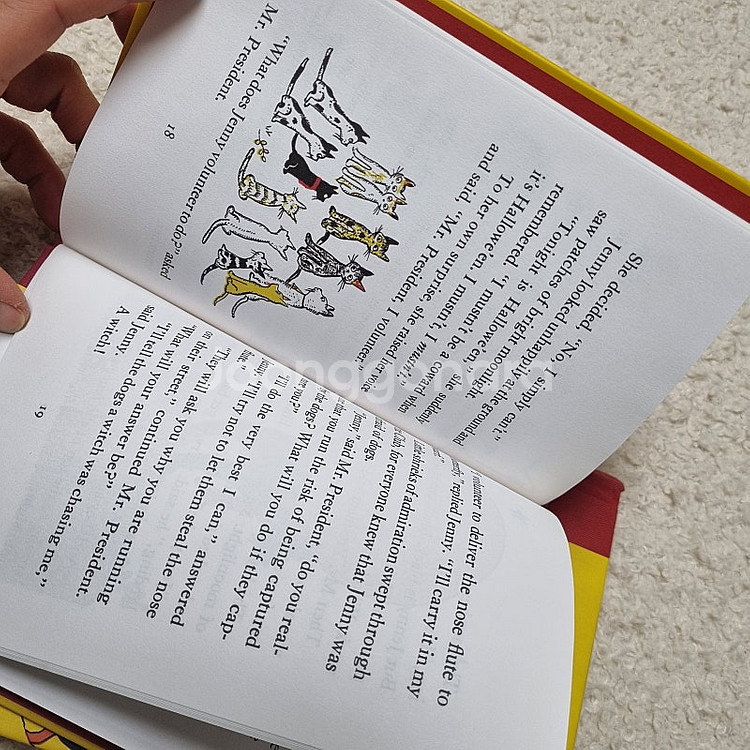 She decided, "No, I simply can't."
Jenny looked unhappily at the ground and
saw patches of bright moonlight.
"Tonight is Halloween," she suddenly
remembered. "I mustn't be a coward when
it's Halloween. I mustn't, I must
To her own surprise, she raised her voice
and said, "Mr. President, I volunteer
"What does Jenny volunteer to do?" asked
Mr. President.
18
volunteer to deliver the nose flute to
replied Jenny. "I'll carry it in my
shrieks of admiration swept through
Club, for everyone knew that Jenny was
of dogs.
Jenny," said Mr. President, "do you real-
that you run the risk of being captured
the dogs? What will you do if they cap-
you?"
"I'll do the very best I can," answered
Jenny. "I'll try not to let them steal the nose
flute."
"They will ask you why you are running
on their street," continued Mr. President.
"What will your answer be?"
"I'll tell the dogs a witch was chasing me,"
said Jenny.
A witch!
19
joonggonara